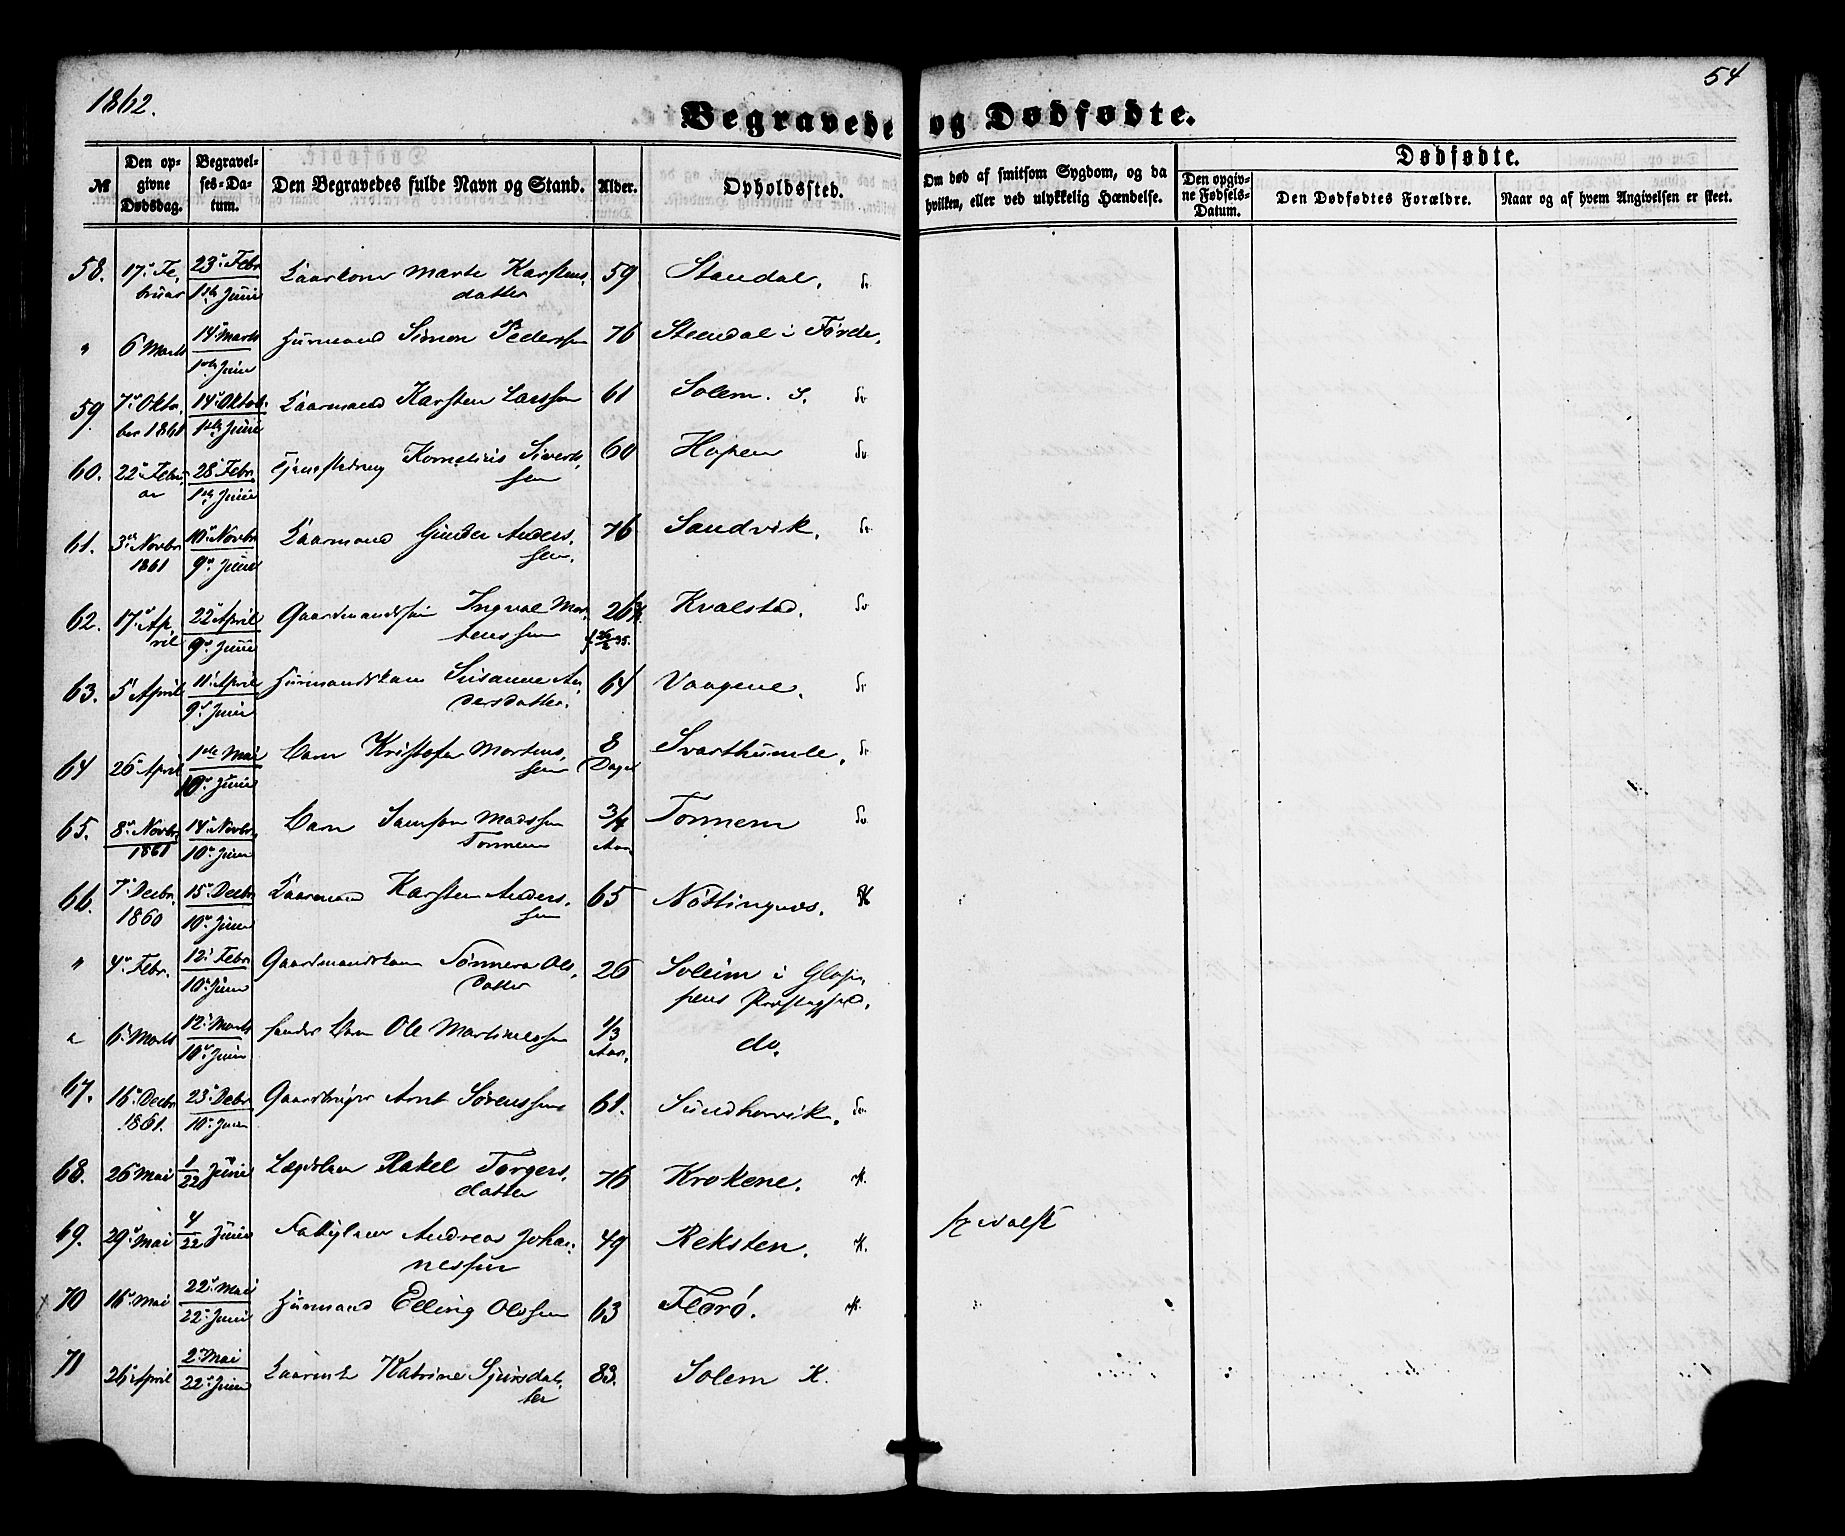 1862.
54
Begravede og Dødfødte.
№
Den opgivne Dødsdag.
Begravelses-Datum.
Den Begravedes fulde Navn og Stand.
Alder.
Opholdssted.
Om død af smitsom Sygdom, og da hvilken, eller ved ulykkelig Hændelse.
Dødfødte.
Den opgivne Fødsels-Datum.
Den Dødfødtes Forældre.
Naar og af hvem Angivelsen er skeet.
58. 17de Februar 23de Febr / 1ste Juni Kaarkone Marte Karstensdatter 59 Standal.
" 6 Marts 14de Marts / 1ste Juni Huusmand Simon Pederssen 76 Steendal i Førde.
59 7de Oktober 1861 14de Oktob. / 1ste Juni Kaarmand Karsten Larssen 61 Solem. S.
60. 22de Februar 28de Febr. / 1ste Juni Kornelius Sivertssen 60 Hopen
61. 3die Novbr 1861 10de Novbr / 9de Juni Kaarmand Gunder Anderssen. 76 Sandvik.
62. 17de April 22de April / 9de Juni Gaardmandssøn Ingval Mortenssen 26 f. 26/2 35. Kvalstad.
63. 5te April 11te April / 9de Juni Huusmandskone Susanne Andersdatter. 64 Vaagene.
64 26de April 1ste Mai / 10de Juni Barn Kristofer Mortenssen 8 Dage Svarthumle.
65. 8de Novbr. 1861 14de Novbr. / 10de Juni Barn Samson Madssen Tonnem 3/4 Aar Tonnem
66. 7de Decbr. 1860 15de Decbr / 10de Juni Kaarmand Karsten Anderssen 65 Nöttingnes. K
" 4de Febr. 12te Febr / 10de Juni Gaardmandskone Sönneva Olsdatter 26 Soleim i Gloppens Præstegjeld.
" 6te Marts 12te Marts / 10de Juni sendes Barn Ole Martinussen 1/3 Aar. do.
67. 16de Decbr 1861. 23de Debr / 10de Juni Gaardbruger Arnt Sörenssen 61. Sundhorvik.
68. 26de Mai 1/22 Juni Lægdslem Rakel Torgersdatter 76 Krokene. K.
69. 29de Mai 4/22 Juni Fattiglem Andreas Johannessen 49 Reksten. K.
x 70 16de Mai 22de Mai / 22de Juni Huusmand Elling Olssen 63 Florø. K.
71 26de April 2den Mai / 22de Juni Katrine Sjursdatter 83. Solem K.